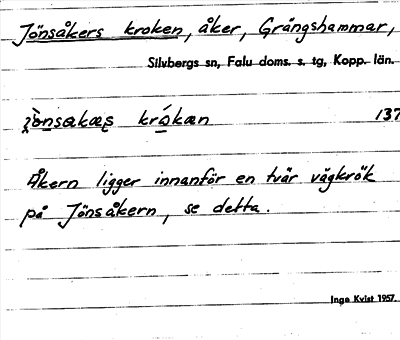 Jönsåkers kroken, åker, Grängshammar,
Silvbergs sn, Falu doms. s. tg, Kopp. län.
krókæn 137
Åkern ligger innanför en tvär vägkrök
på Jönsåkern, se detta.
Inga Kvist 1957.